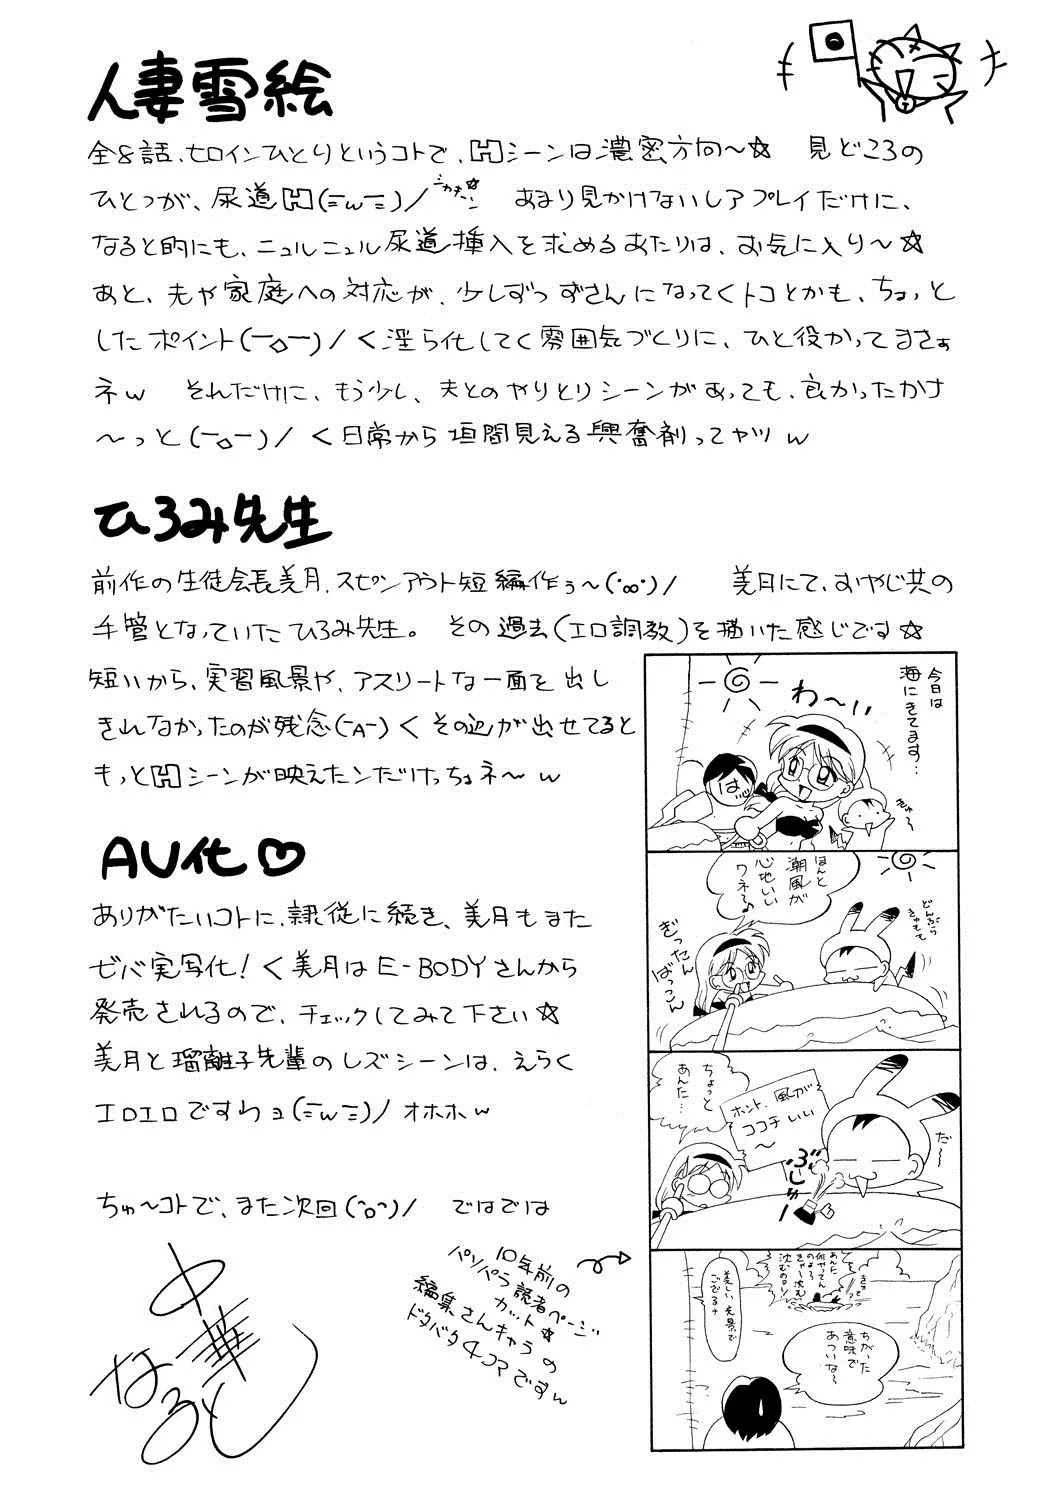 人妻雪絵
全8話、ヒロインひとりというコトで、Hシーンは濃密方向～☆　見どころの
ひとつが、尿道H(ニwニ)/ジカキーン☆　あまり見かけないレアプレイだけに、
なると的にも、ニュルニュル尿道挿入を求めるあたりは、お気に入り～☆
あと、夫や家庭への対応が、少しずつずさんになってくトコとかも、ちょっと
したポイント(￣o￣)/く淫ら化してく雰囲気づくりに、ひと役かってまさぁ
ネw　それだけに、もう少し、夫とのやりとりシーンがあっても、良かったかな
～っと(￣o￣)/く日常から垣間見える興奮剤ってヤツw
ひろみ先生
前作の生徒会長美月、スピンアウト短編作ぅ～(･∞･)/　美月にて、おやじ共の
手管となっていたひろみ先生。その過去(エロ調教)を描いた感じです☆
短いから、実習風景や、アスリートな一面を出し
きれなかったのが残念(ｰAｰ)くその辺が出せてると
もっとHシーンが映えたンだけっちょネ～w
AV化♡
ありがたいコトに、隷従に続き、美月もまた
ゼバ実写化！く美月はE-BODYさんから
発売されるので、チェックしてみて下さい☆
美月と瑠璃子先輩のレズシーンは、えらく
エロエロですわョ(ニwニ)/オホホw
ちゅ～コトで、また次回(^o^)/　ではでは
中華なると
10年前の
パソパラ読者ページ
カット☆
編集さんキャラの
ドタバタ4コマですw
今日は
海にきてます…
わ～い
はい
きゅ～
ほんと
潮風が
心地いい
ワネ～♪
どんぶら
きゅもも
ぎったん
ばっこん
ちょっと
あんた…
ホント、風が
ココチいい
～
だ～
ぶしゅー
あんた
何やってん
のよ～
きゃー沈む
沈むのョ～
美しい光景で
ござるナ
ちがった
意味で
あついな～